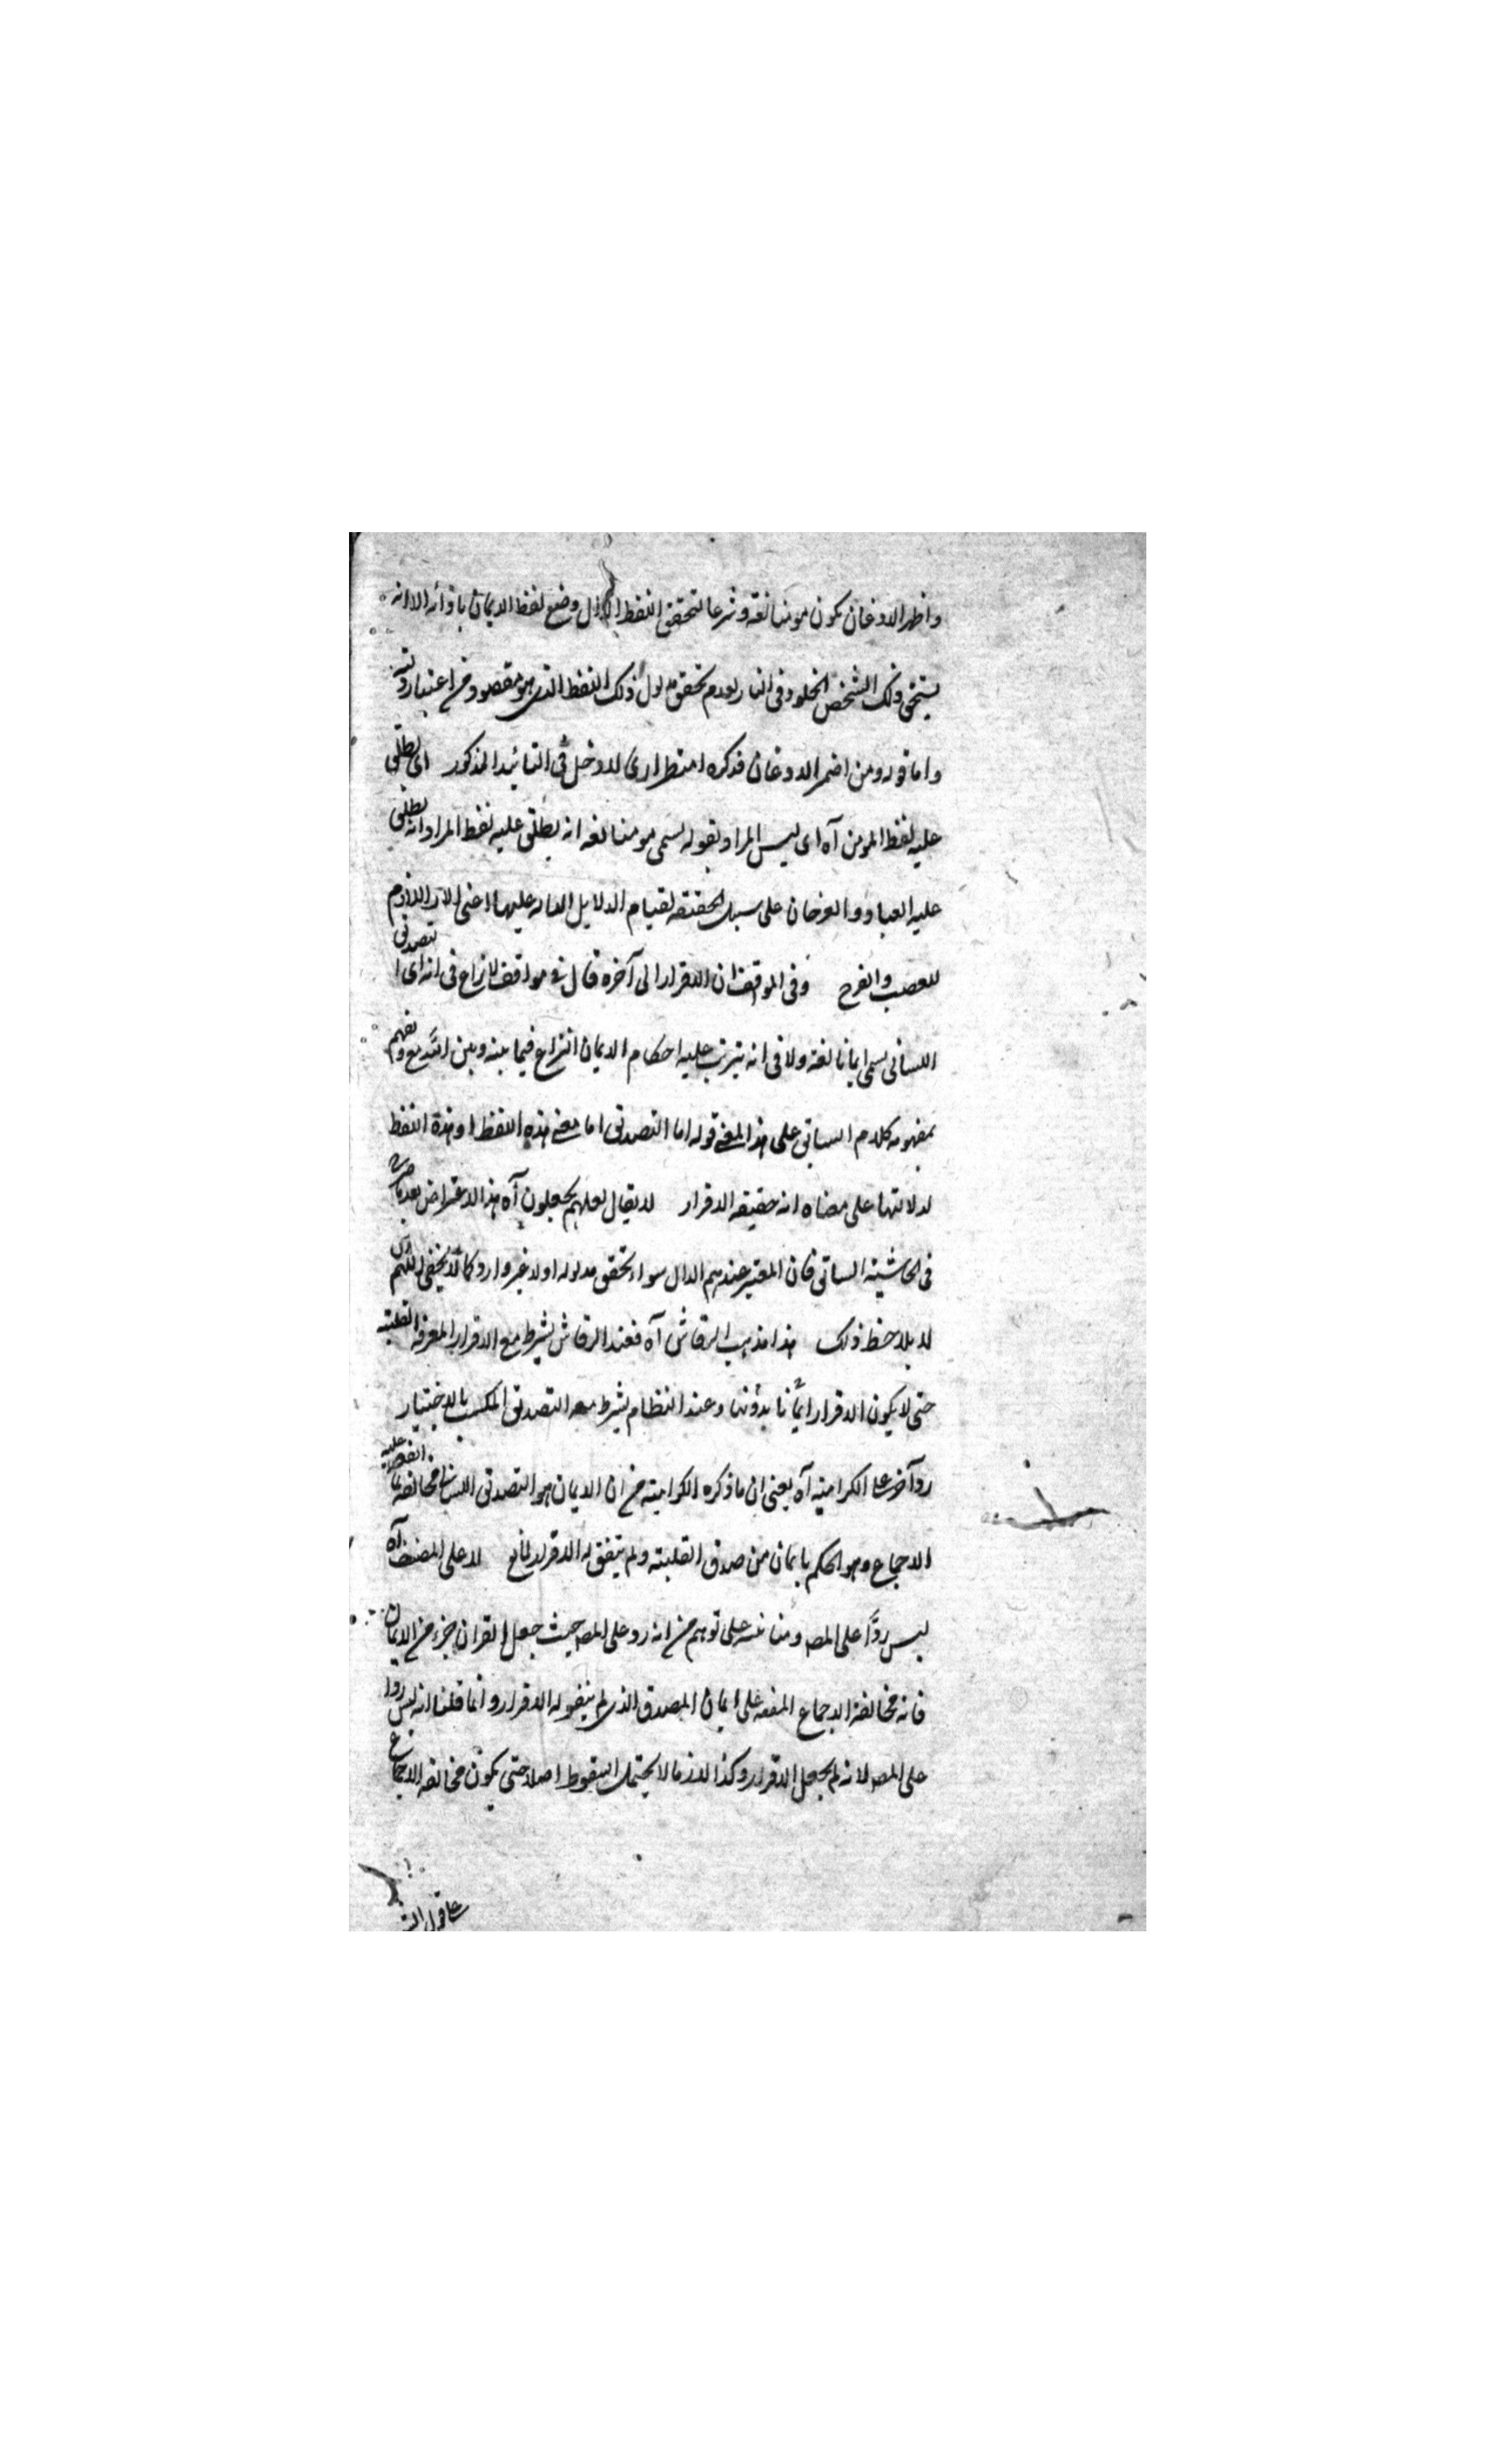 واظهر الاذعان يكون مومنا لغة وشرعا لتحقق اللفظ الدال وضع لفظ الايمان بازائه الا انه
يستحق ذلك الشخص الخلود في النار لعدم تحقق مدلول ذلك اللفظ الذي هو مقصود من اعتباره
واما قوله ومن اضمر الاذعان فذكره استطرادى لا دخل له في التائيد المذكور اى يطلق
عليه لفظ المومن آه اى ليس المراد بقوله يسمى مومنا لغة انه يطلق عليه لفظ المراد انه يطلق
عليه العباد والفرحان على سبيل الحقيقة لقيام الدلايل الدالة عليها اعنى الاثار اللازمة
للغضب والفرح وفي المواقف ان الاقرار الى آخره قال في مواقف لا نزاع في انه اى التصديق
اللسانى يسمى ايمانا لغة ولا في انه يترتب عليه احكام الايمان انما النزاع فيما بينه وبين الله تع ويفهم
بمفهومه كلام السابق على هذا المعنى قوله اما التصديق اما معنى هذه اللفظ او هذه اللفظ
لدلالتها على معناه انه حقيقة الاقرار لا يقال لعلهم يجعلون آه هذا الاعتراض بعد ما مر
في الحاشية السابق فان المعتبر عندهم الدال سواء تحقق مدلوله اولا غير وارد كما لا يخفى اللهم
لا يلاحظ ذلك هذا مذهب الرقاشى آه فعند الرقاشى يشرط مع الاقرار المعرفة القلبية
حتى لا يكون الاقرار ايمانا بدونها وعند النظام يشرط معه التصديق المكتسب بالاختيار
رد آخر على الكرامية آه يعنى ان ما ذكره الكرامية من ان الايمان هو التصديق اللسانى مخالفة لما انعقد عليه
الاجماع وهو الحكم بايمان من صدق القلبية ولم يتفق له الاقرار لمانع لا على المصنف آه
ليس ردًّا على المص ومنافيه على توهم من انه رد على المص حيث جعل القران جزء من الايمان
فانه مخالفة الاجماع المنعقد على ايمان المصدق الذى لم يتفق له الاقرار وانما قلنا انه ليس ردا
على المص لانه لم يجعل الاقرار ركنا لازما لا يحتمل السقوط اصلا حتى يكون مخالفة الاجماع